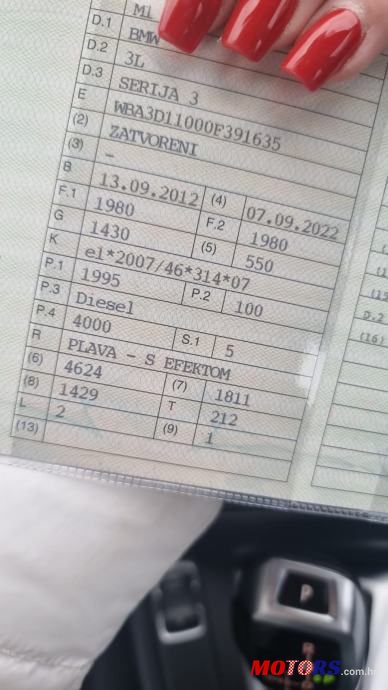 D.1 BMW
D.2 3L
D.3 SERIJA 3
E WBA3D11000F391635
(2) ZATVORENI
(3) -
B 13.09.2012 (4) 07.09.2022
F.1 1980 F.2 1980
G 1430 (5) 550
K e1*2007/46*314*07
P.1 1995 P.2 100
P.3 Diesel
P.4 4000 S.1 5
R PLAVA - S EFEKTOM
(6) 4624 (7) 1811
(8) 1429 T 212
L 2 (9) 1
(13)
D.2
(16)
P
MOTORS.com.hr